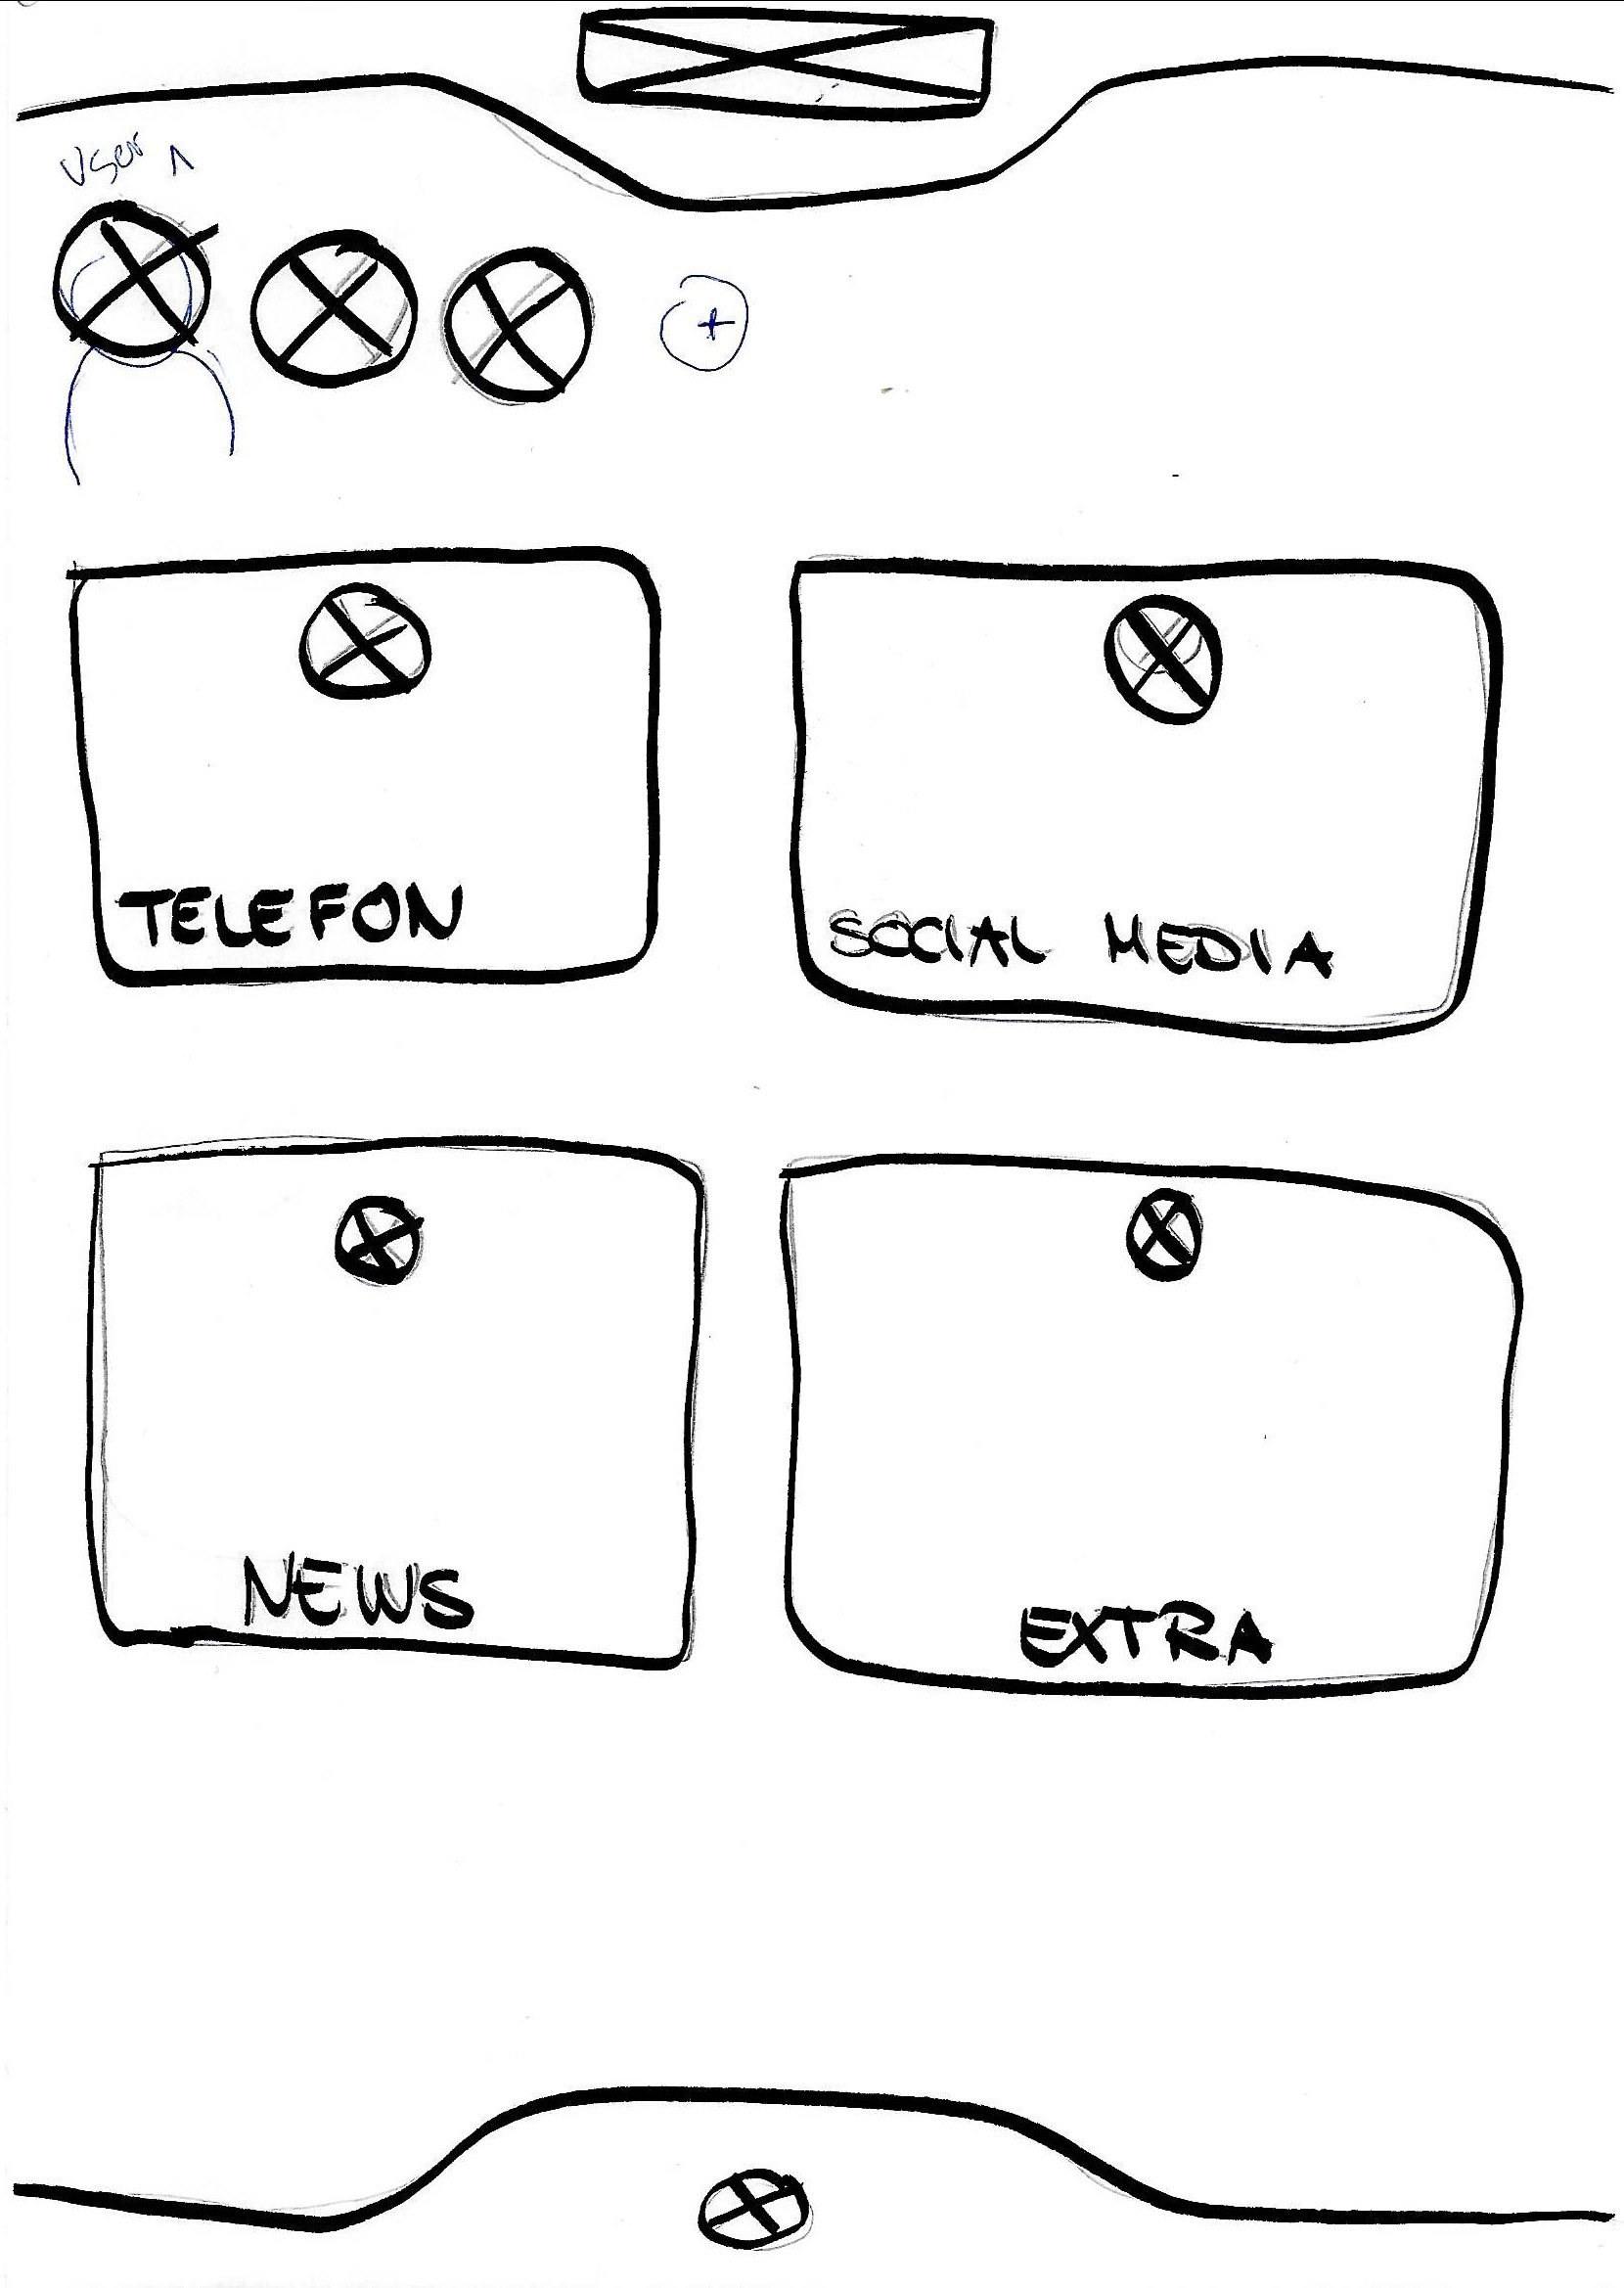 User 1
+
TELEFON
SOCIAL MEDIA
NEWS
EXTRA